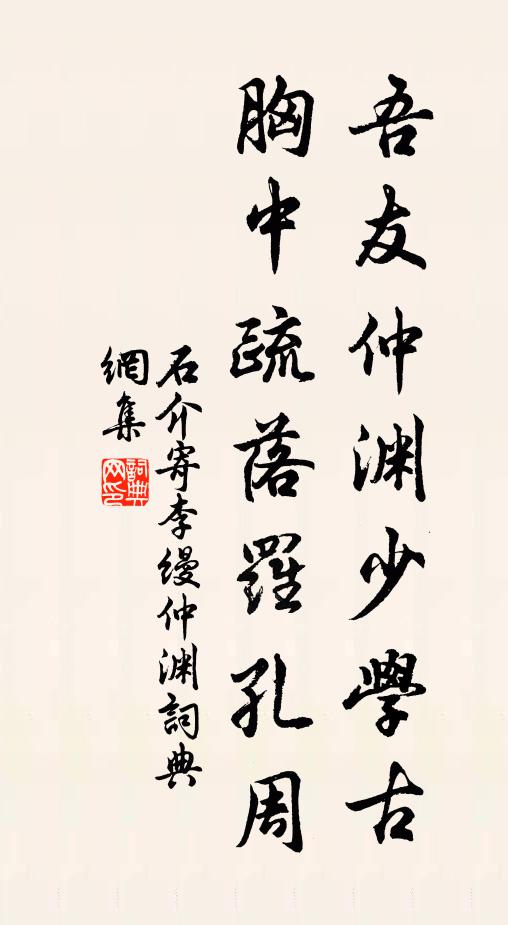 吾友仲渊少學古
胸中疏落羅孔周
石介寄李缦仲渊詞典
網集
詞典
网印